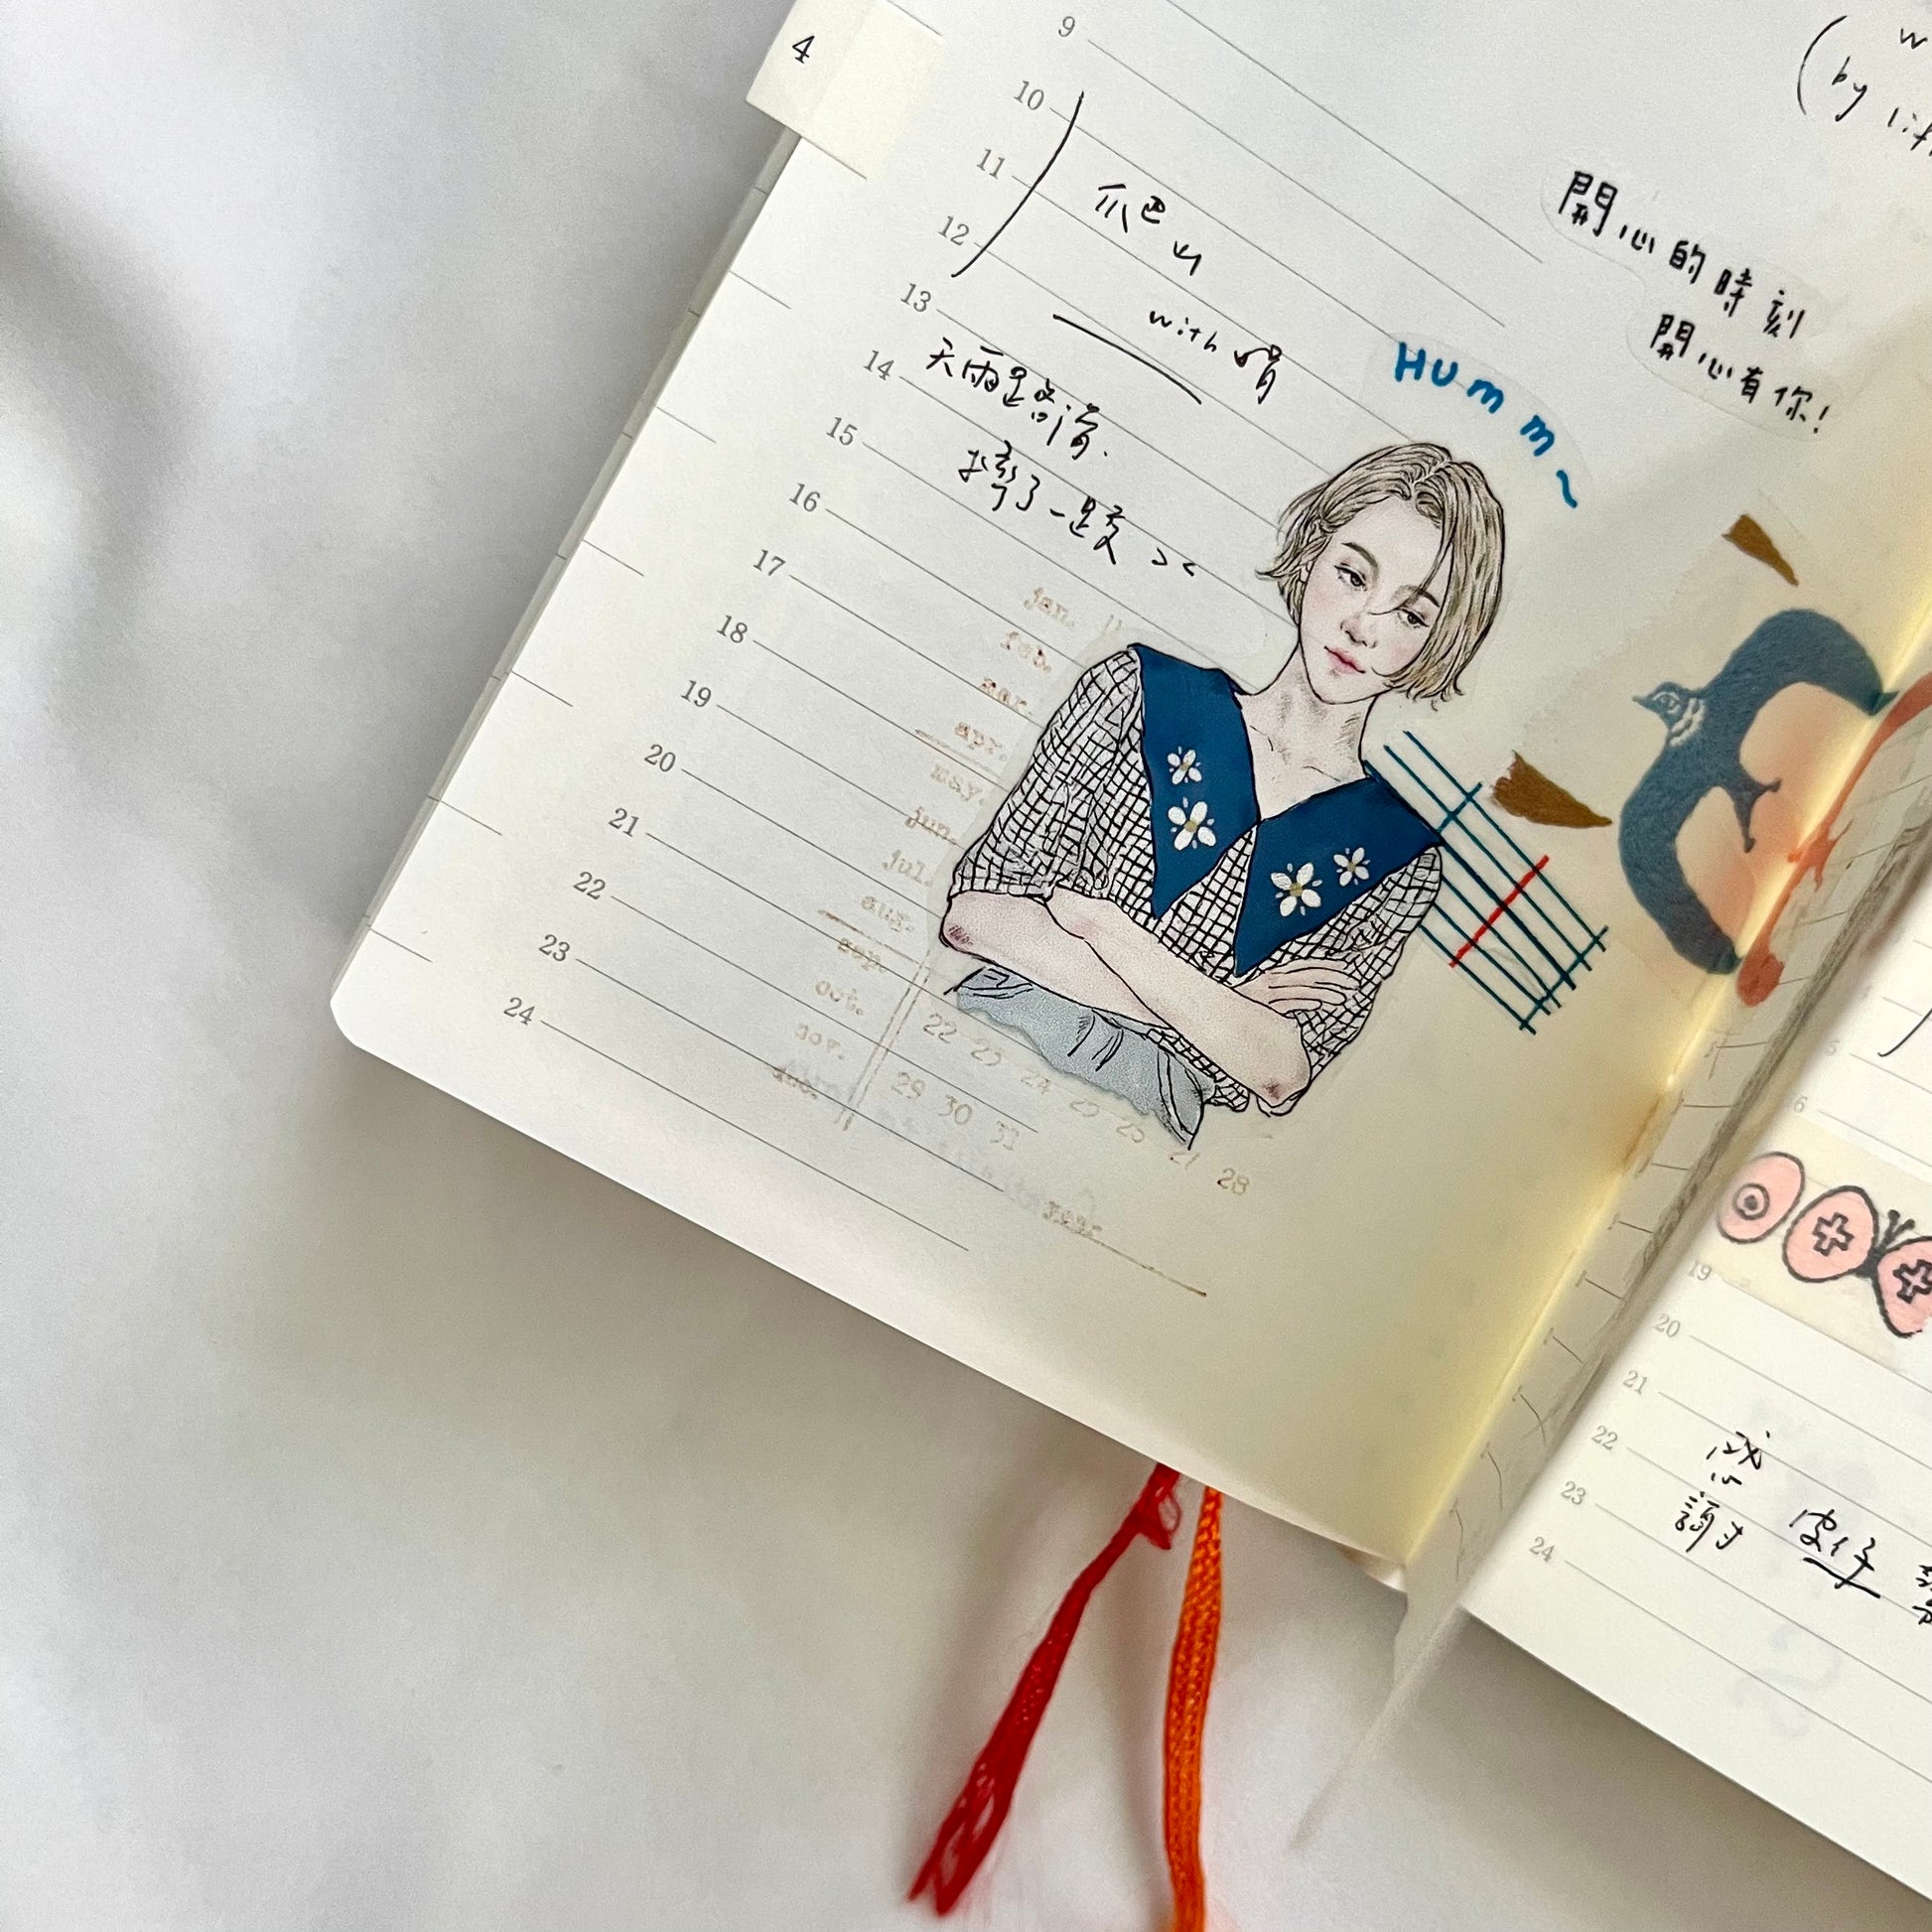 4
9
10
11
12
13
14
15
16
17
18
19
20
21
22
23
24
爬山
with 娟
天雨路滑.
摔了一跤 ><
開心的時刻
開心有你!
Humm~
jan.
feb.
mar.
apr.
may.
jun.
jul.
aug.
sep.
oct.
nov.
22 23 24 25 26 27 28
29 30 31
year
(by
19
20
21
22
23
24
感
謝 皮仔